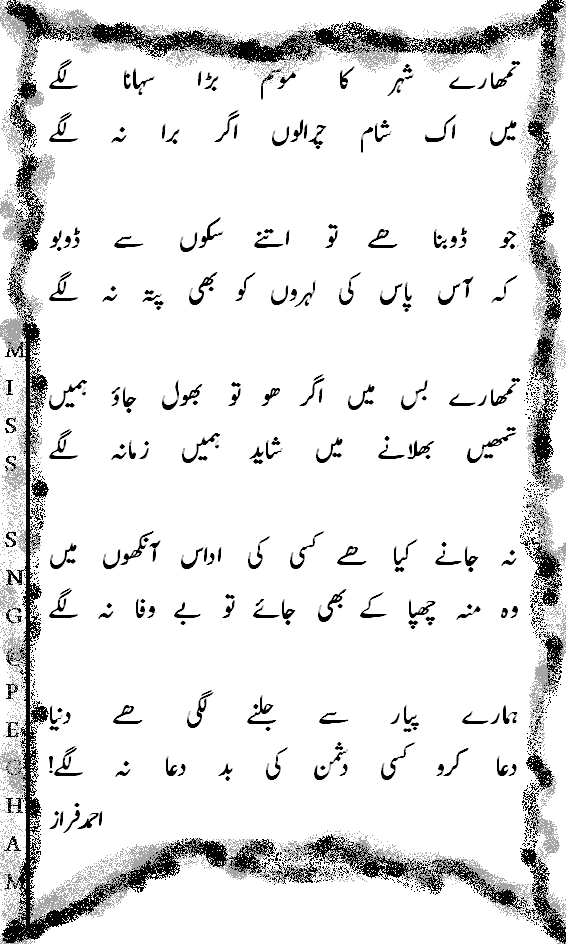 تمھارے شہر کا موسم بڑا سہانا لگے
میں اک شام چرالوں اگر برا نہ لگے
جو ڈوبنا ھے تو اتنے سکوں سے ڈوبو
کہ آس پاس کی لہروں کو بھی پتہ نہ لگے
تمھارے بس میں اگر ھو تو بھول جاؤ ہمیں
تمھیں بھلانے میں شاید ہمیں زمانہ لگے
نہ جانے کیا ھے کسی کی اداس آنکھوں میں
وہ منہ چھپا کے بھی جائے تو بے وفا نہ لگے
ہمارے پیار سے جلنے لگی ھے دنیا
دعا کرو کسی دشمن کی بد دعا نہ لگے!
احمد فراز
MISS SNG@PEGHAM